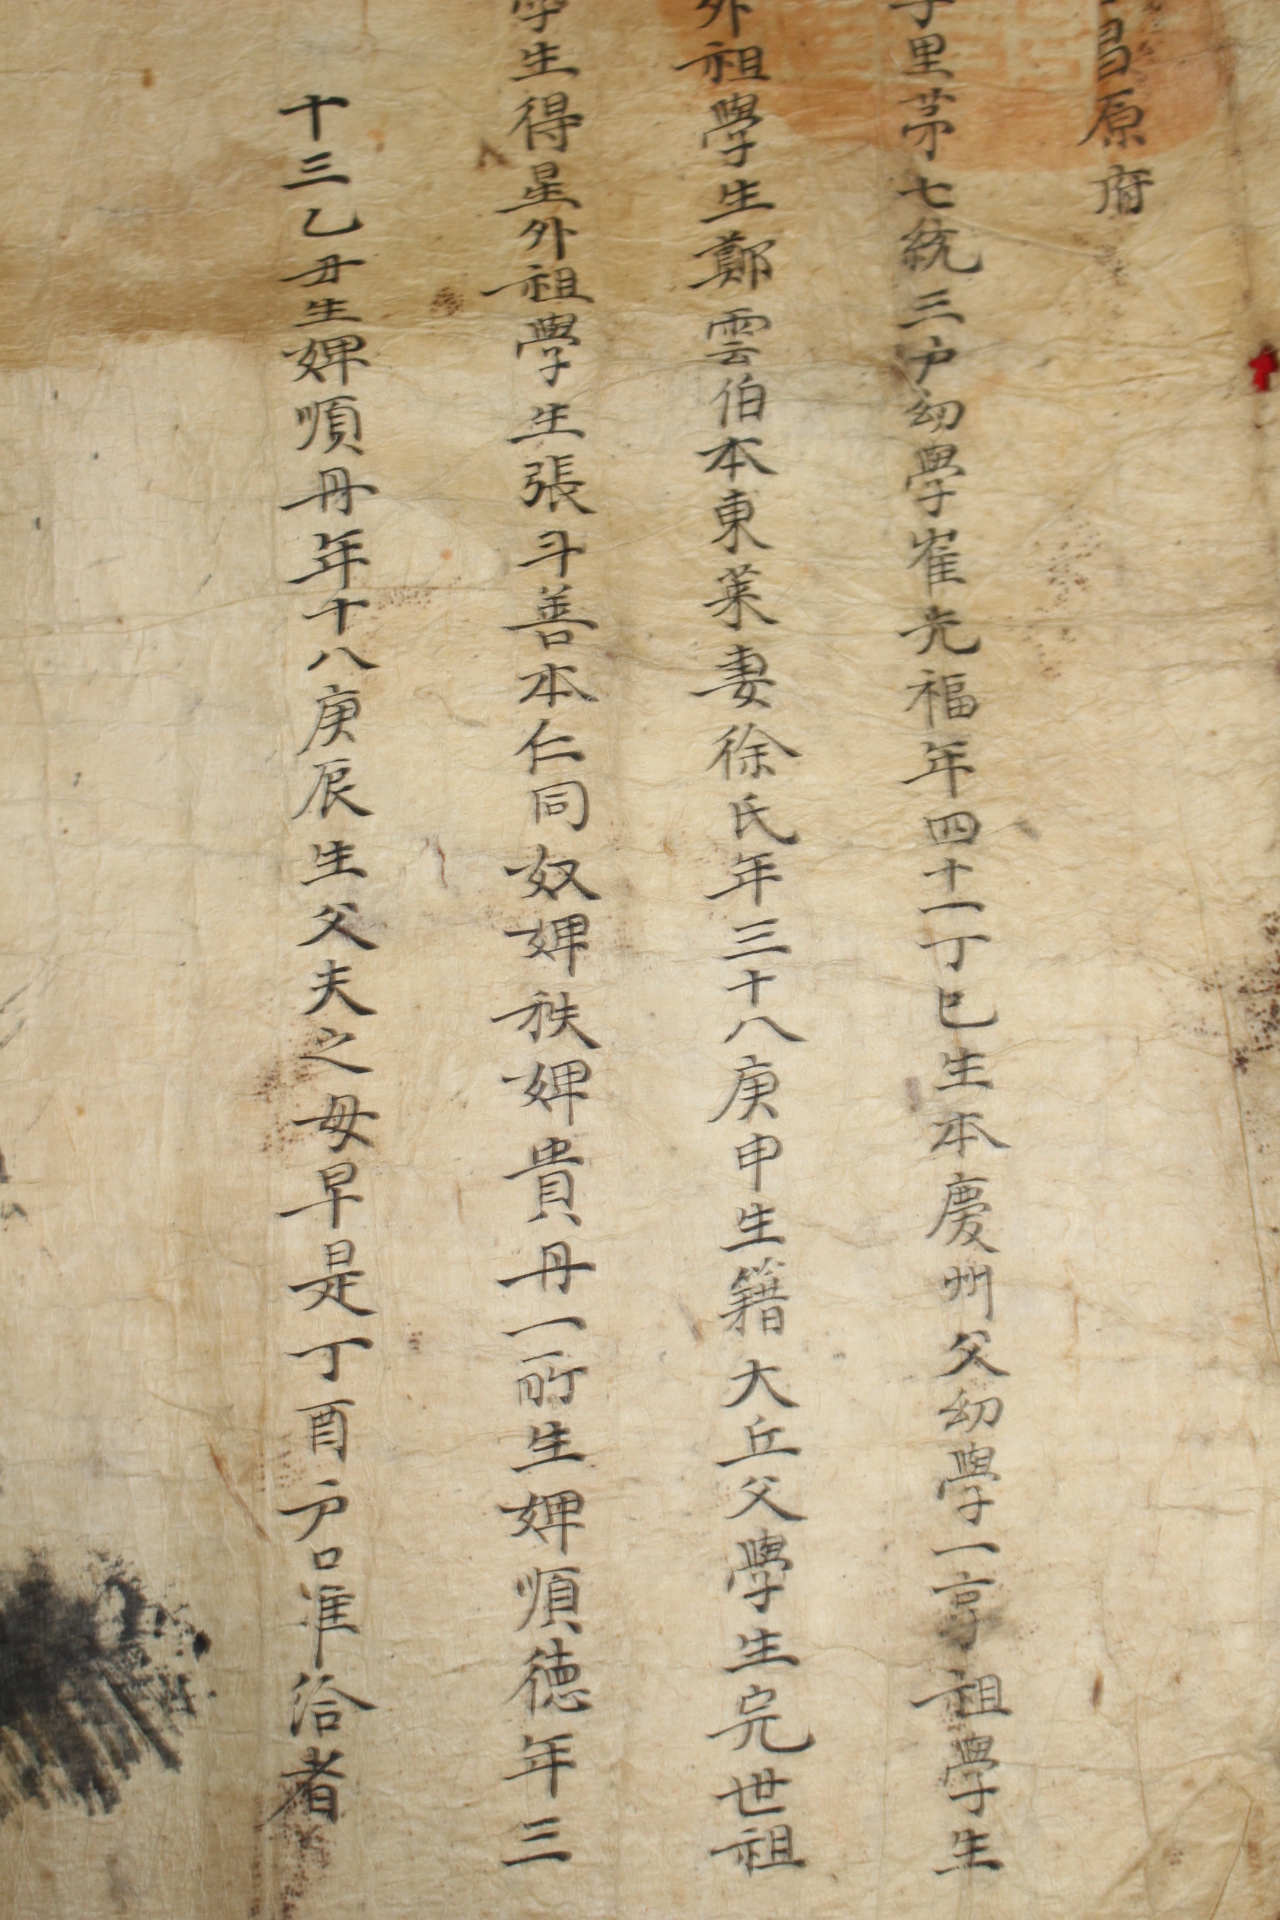 昌原府
里苐七統三户幼學崔光福年四十一丁巳生本慶州父幼學一亨祖學生
外祖學生鄭雲伯本東萊妻徐氏年三十八庚申生籍大丘父學生完世祖
學生得星外祖學生張斗善本仁同奴婢秩婢貴丹一所生婢順徳年三
十三乙丑生婢順丹年十八庚辰生父夫之母早是丁酉户口准給者